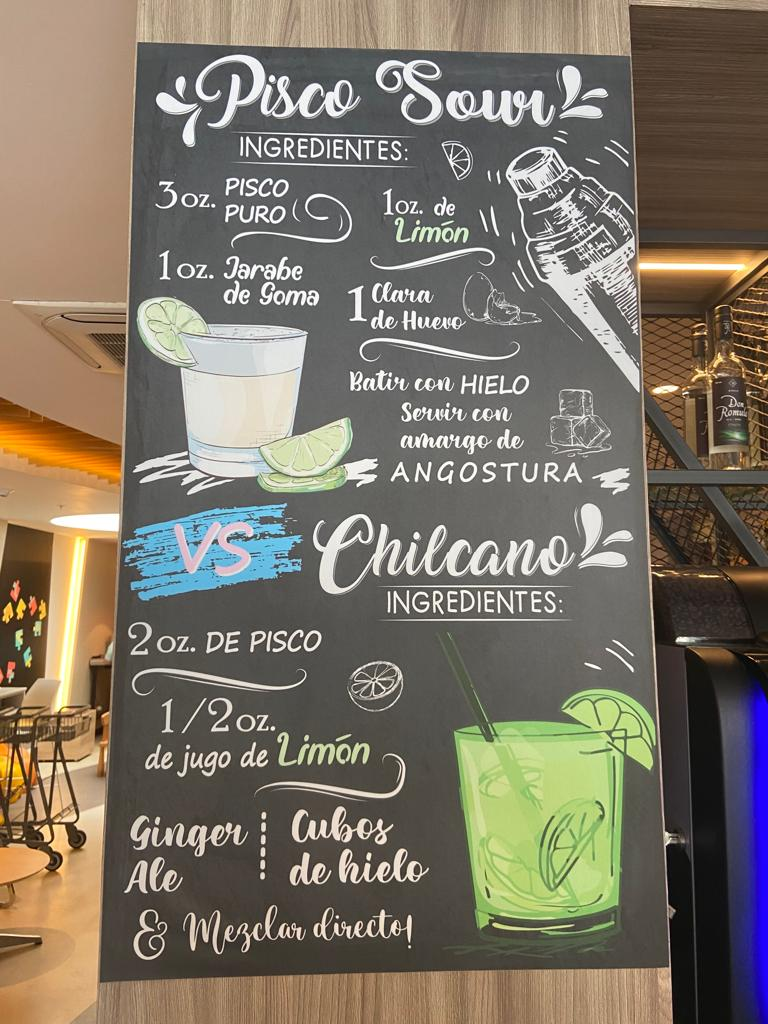 Pisco Sour
INGREDIENTES:
3 oz. PISCO
PURO
1 oz. de
Limón
1 oz. Jarabe
de Goma
1 Clara
de Huevo
Batir con HIELO
Servir con
amargo de
ANGOSTURA
VS
Chilcano
INGREDIENTES:
2 oz. DE PISCO
1/2 oz.
de jugo de Limón
Ginger
Ale
Cubos
de hielo
& Mezclar directo!
Don